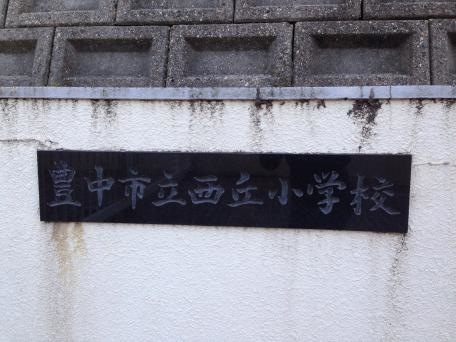 豊中市立西丘小学校